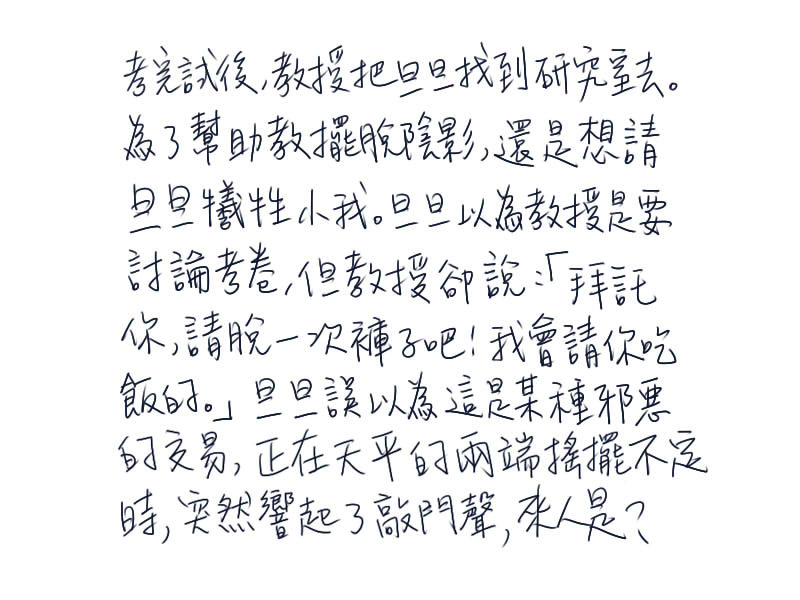 考完試後,教授把旦旦找到研究室去。
為了幫助教擺脫陰影,還是想請
旦旦犧牲小我。旦旦以為教授是要
討論考卷,但教授卻說:「拜託
你,請脫一次褲子吧!我會請你吃
飯的。」旦旦誤以為這是某種邪惡
的交易,正在天平的兩端搖擺不定
時,突然響起了敲門聲,來人是?